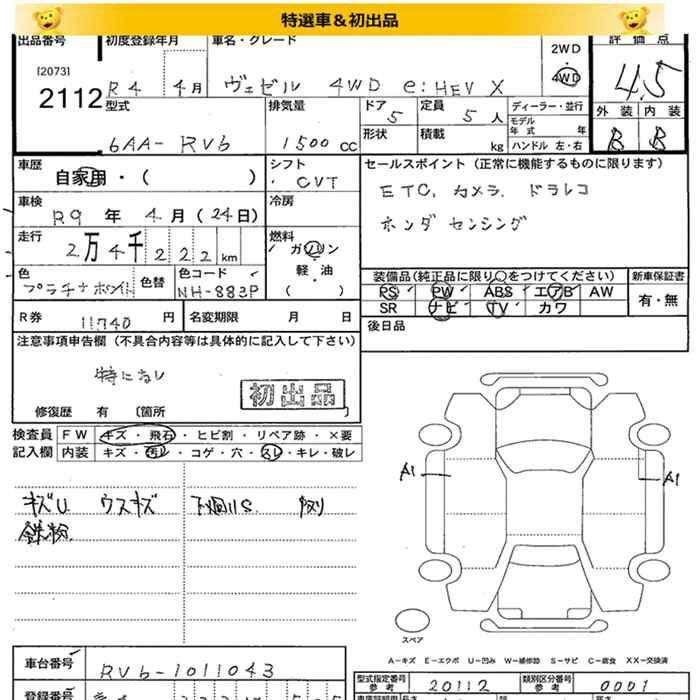 特選車＆初出品
出品番号 [2073] 2112
初度登録年月 R4 4月
車名・グレード ヴェゼル 4WD e:HEV X
2WD
4WD
評価点 4.5
外装 内装
B B
型式 6AA- RV6
排気量 1500 CC
ドア 5
定員 5 人
形状
積載 kg
ディーラー・並行
モデル年式 年
ハンドル 左・右
車歴 自家用・( )
シフト ・CVT
車検 R9 年 4 月 (24日)
冷房
走行 2万4千222km
燃料 ガソリン
軽・油
( )
色 プラチナホワイト
色替
色コード NH-883P
R券 11740 円
名変期限 月 日
セールスポイント (正常に機能するものに限ります)
ETC. カメラ. ドラレコ
ホンダ センシング
装備品(純正品に限り○をつけてください)
PS PW ABS エアB AW
SR ナビ TV カワ
新車保証書
有・無
後日品
注意事項申告欄 (不具合内容等は具体的に記入して下さい)
特になし
初出品
修復歴 有 〔箇所 〕
検査員記入欄
FW キズ・飛石・ヒビ割・リペア跡・×要
内装 キズ・汚レ・コゲ・穴・スレ・キレ・破レ
キズU ウスキズ
鉄粉
下廻りS.
A1 A1
スペア
A−キズ E−エクボ U−凹み W−補修跡 S−サビ C−腐食 XX−交換済
車台番号 RV6-1011043
型式指定番号 参考 20112
類別区分番号 参考 0001
登録番号